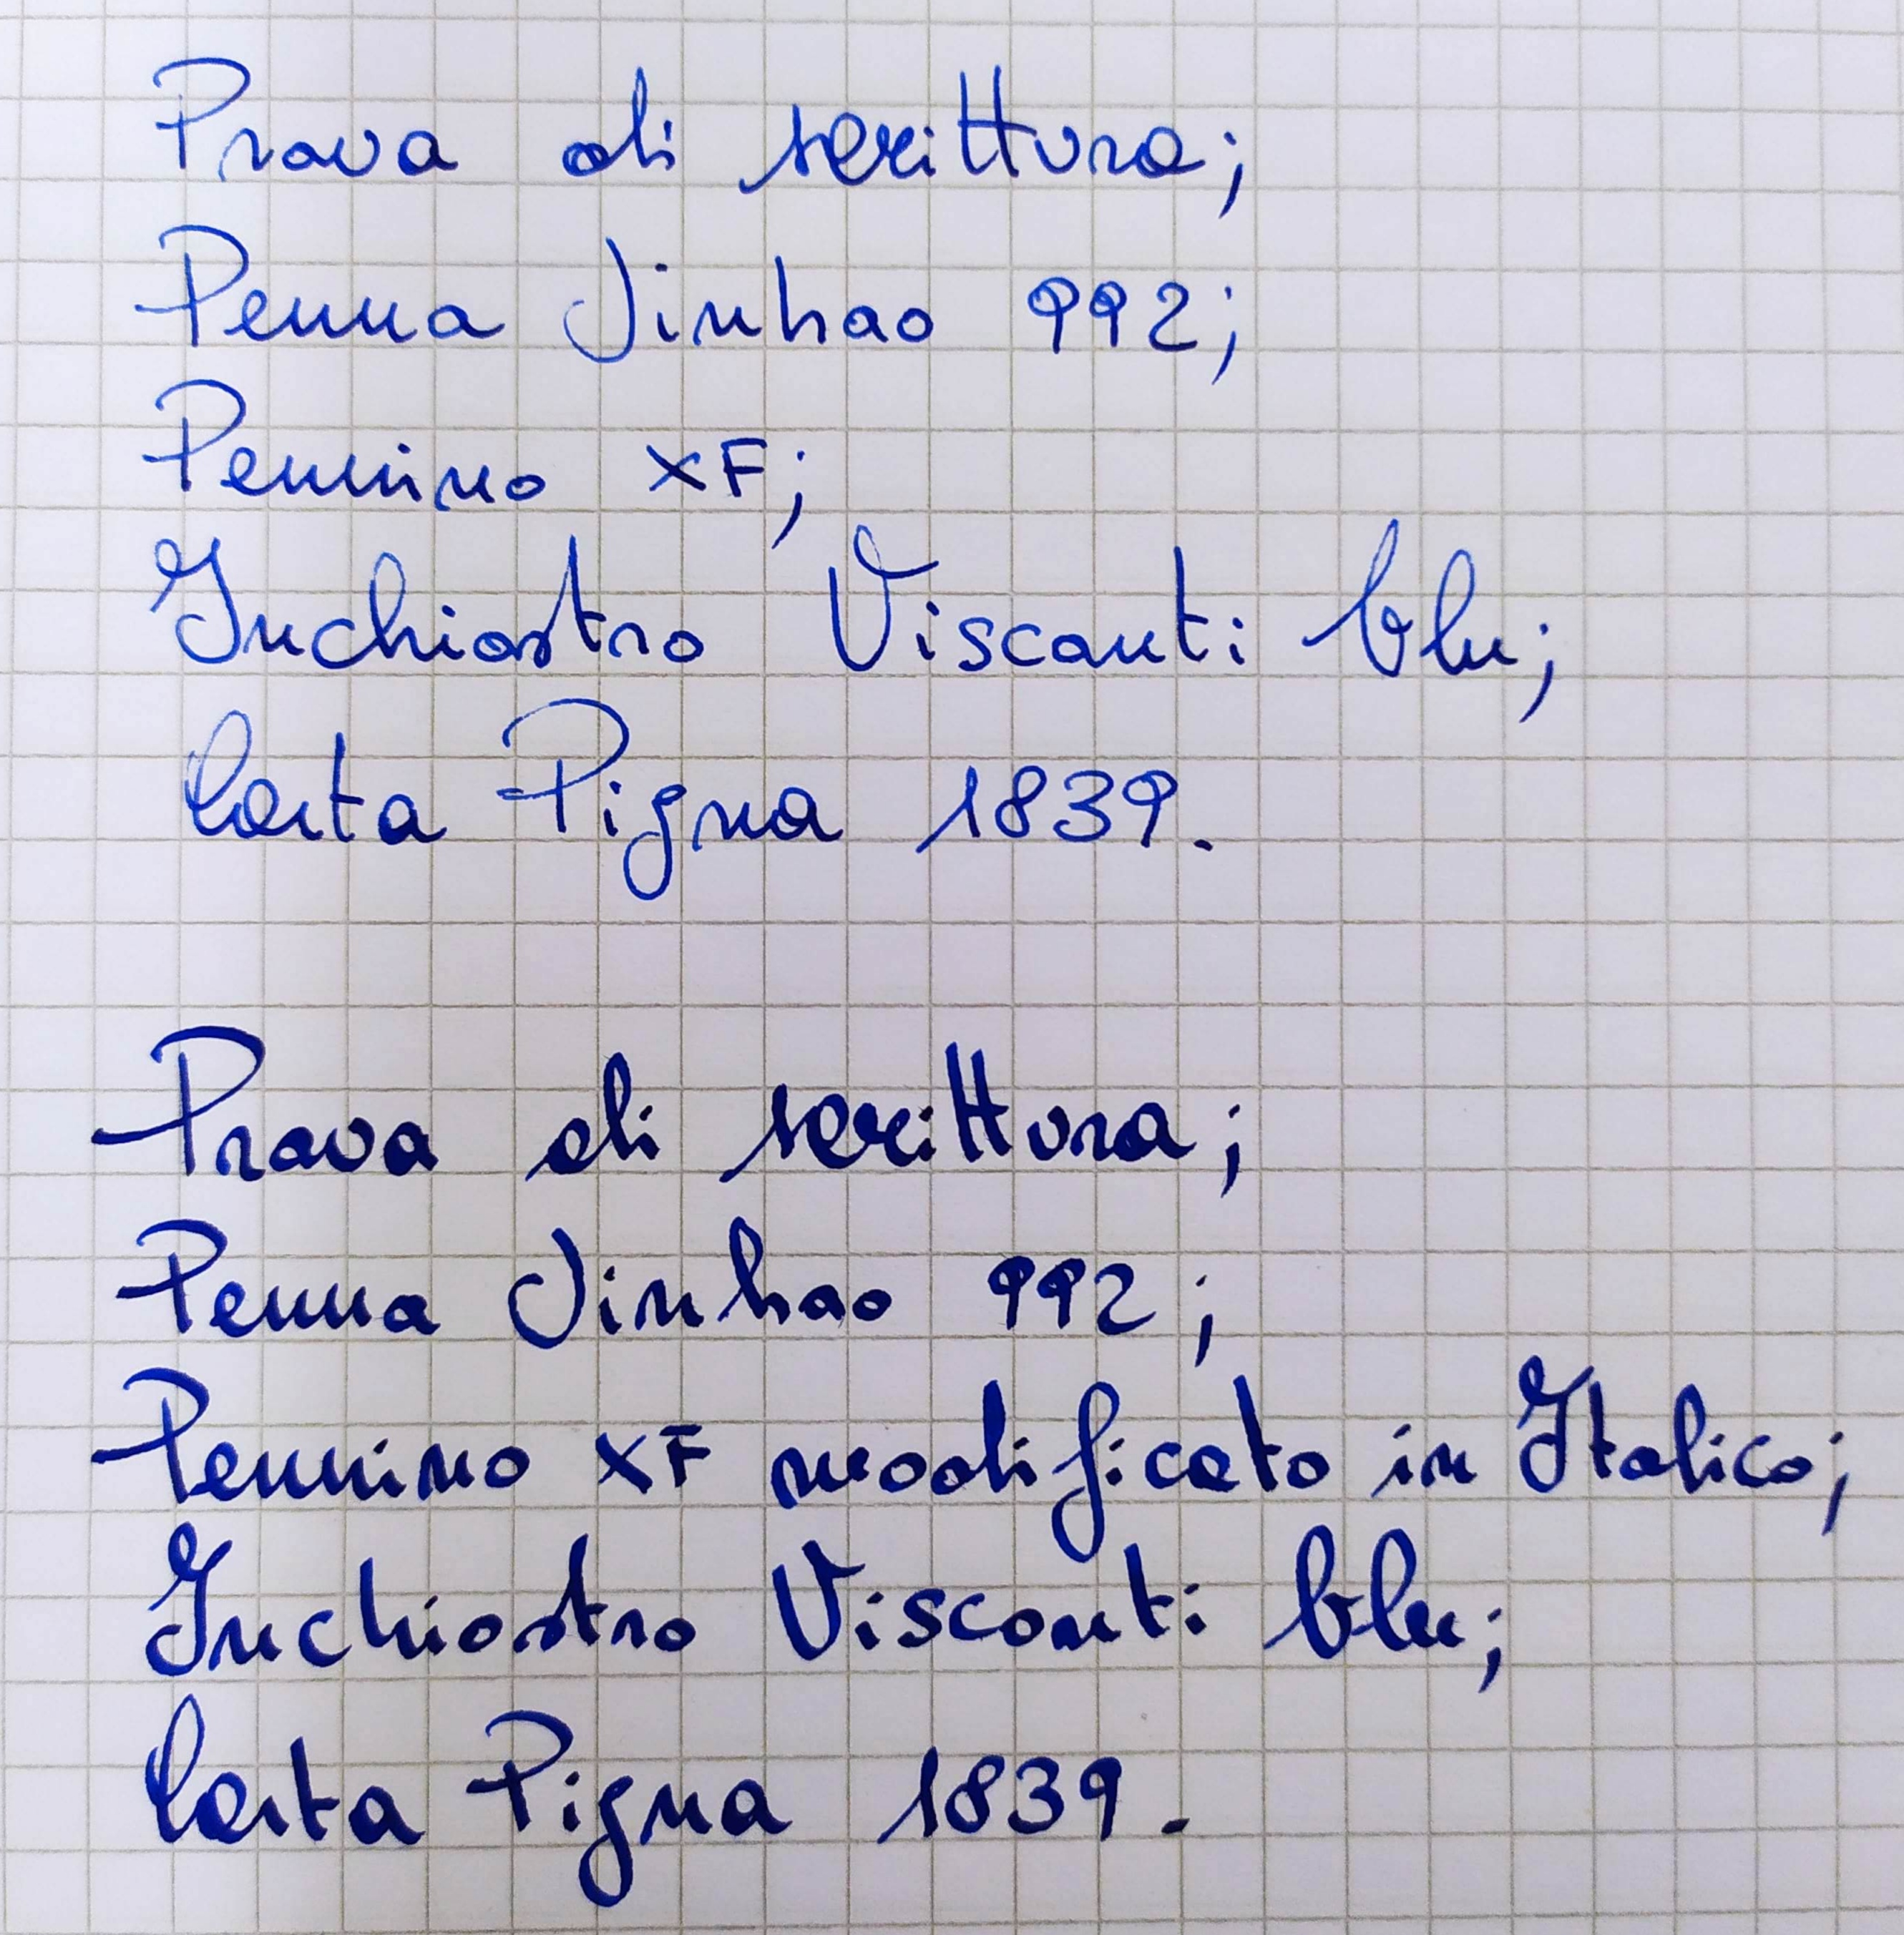 Prova di scrittura;
Penna Jinhao 992;
Pennino XF;
Inchiostro Visconti blu;
Carta Pigna 1839.
Prova di scrittura;
Penna Jinhao 992;
Pennino XF modificato in Italico;
Inchiostro Visconti blu;
Carta Pigna 1839.